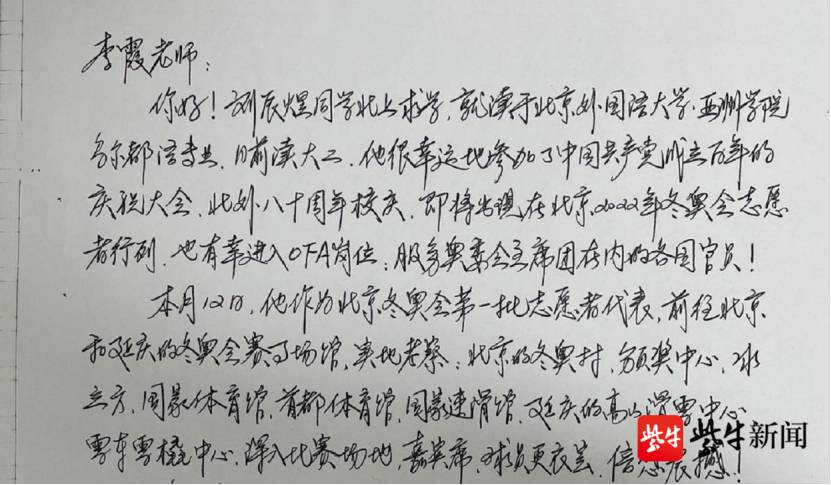 李霞老师：
你好！刘辰煜同学北上求学，就读于北京外国语大学·亚洲学院
乌尔都语专业，目前读大二，他很幸运地参加了中国共产党成立百年的
庆祝大会、北外八十周年校庆，即将出现在北京2022年冬奥会志愿
者行列，也有幸进入OFA岗位：服务奥委会主席团在内的各国官员！
本月12日，他作为北京冬奥会第一批志愿者代表，前往北京
和延庆的冬奥会赛事场馆，实地考察：北京的冬奥村、颁奖中心、冰
立方、国家体育馆、首都体育馆、国家速滑馆、延庆的高山滑雪中心
雪车雪橇中心，深入比赛场地，嘉宾席、球员更衣室，倍感震撼！
紫牛
紫牛新闻